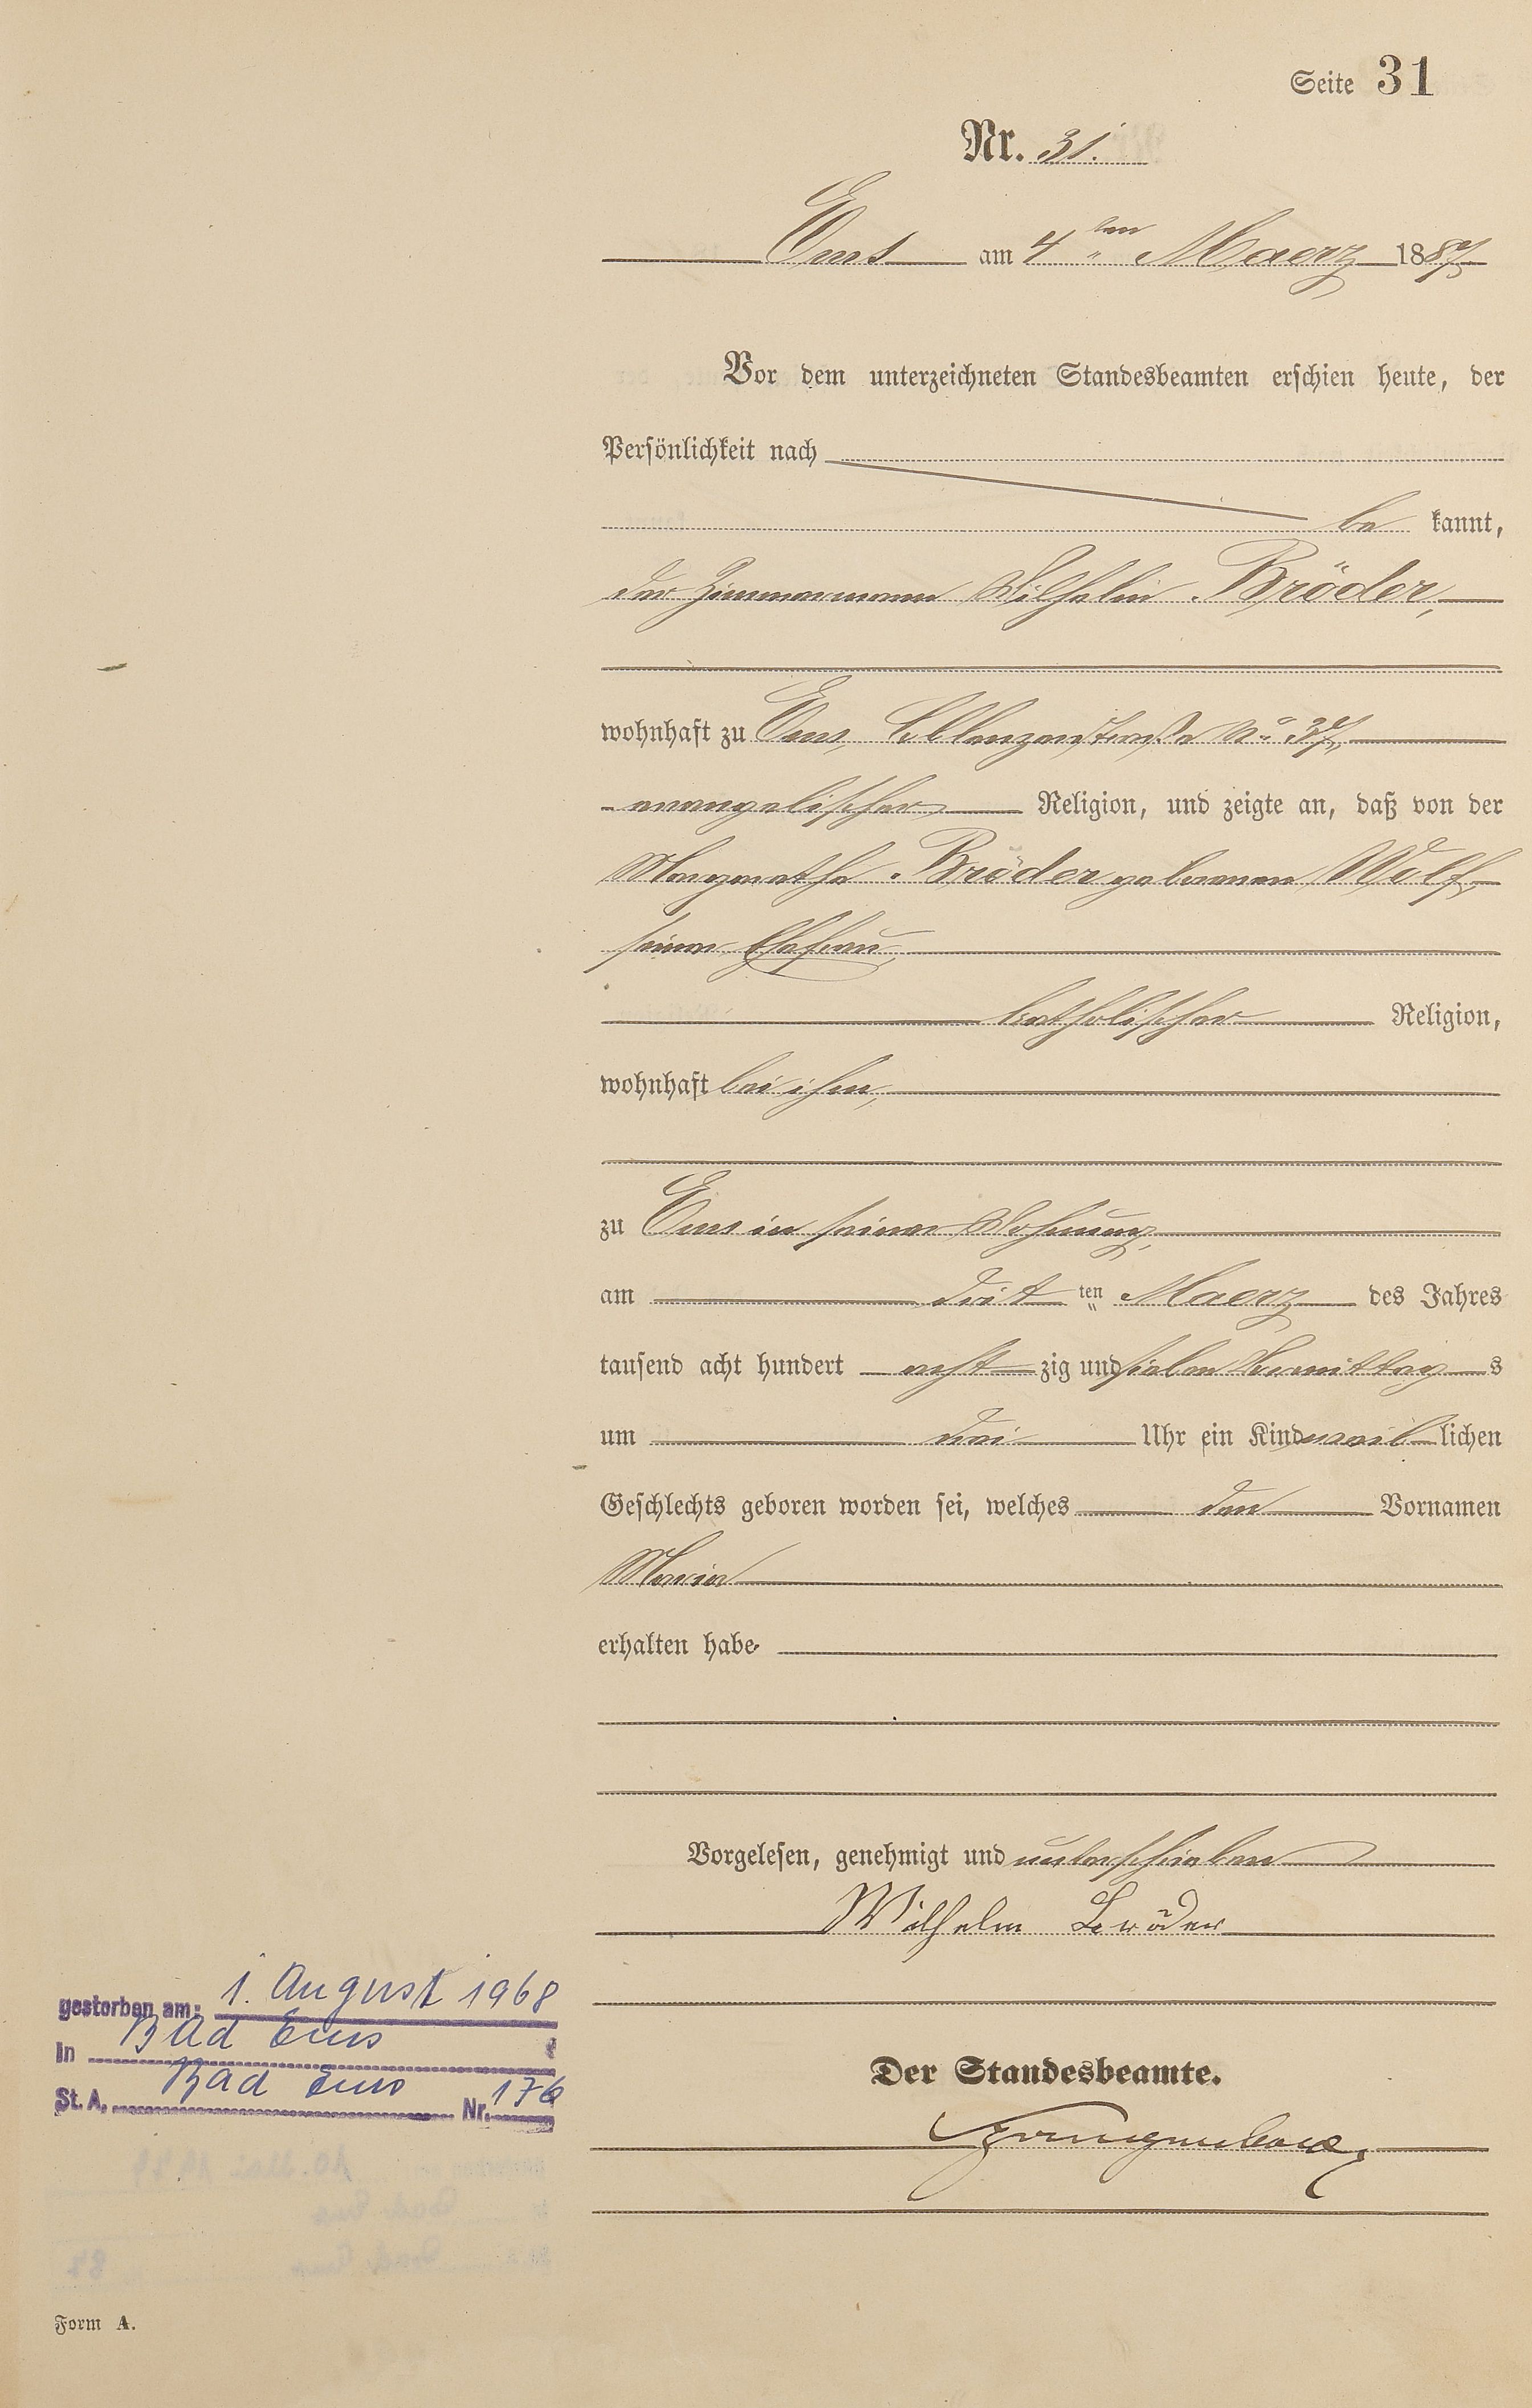 Seite 31
Nr. 31.
Ems am 4ten Maerz 1887
Vor dem unterzeichneten Standesbeamten erschien heute, der
Persönlichkeit nach
be kannt,
der Zimmermann Wilhelm Bröder,
wohnhaft zu Ems, Coblenzerstraße No 37,
evangelischer Religion, und zeigte an, daß von der
Margarethe Bröder geborenen Wolf,
seiner Ehefrau,
katholischer Religion,
wohnhaft bei ihm,
zu Ems in seiner Wohnung,
am drit ten Maerz des Jahres
tausend acht hundert acht zig und sieben Vormittag s
um drei Uhr ein Kind weib lichen
Geschlechts geboren worden sei, welches den Vornamen
Maria
erhalten habe
Vorgelesen, genehmigt und unterschrieben
Wilhelm Bröder
gestorben am: 1. August 1968
in Bad Ems
St. A. Bad Ems Nr. 176
Der Standesbeamte.
Form A.